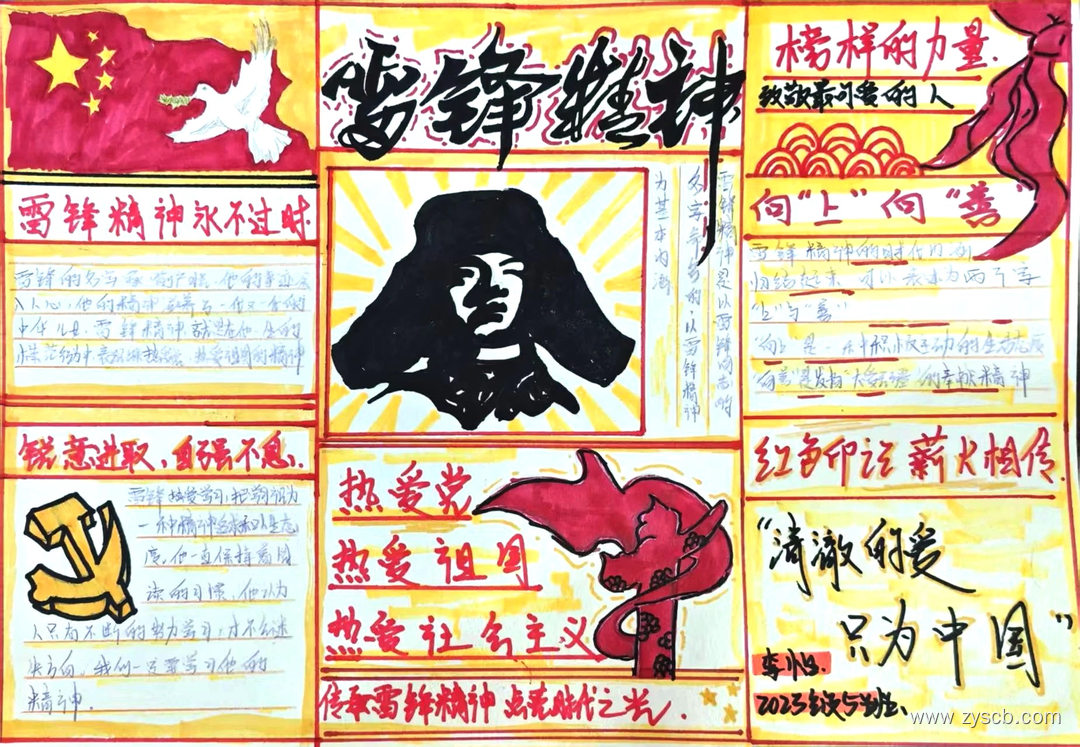 雷锋精神
雷锋精神永不过时
入人心,他的精神
中华儿女,雷锋精神就是
锐意进取,自强不息.
雷锋热爱学习,把学习认为
一种精神追求和人生态
度,他一直保持着阅
读的习惯,他认为
人只有不断的努力学习,才不会迷
失方向,我们一定要学习他的
精神.
雷锋精神是以雷锋同志的
名字命名的,以雷锋精神
为基本内涵
热爱党
热爱祖国
热爱社会主义
传承雷锋精神 点亮时代之光.
榜样的力量.
致敬最可爱的人
向“上”向“善”
雷锋精神的时代内涵
归结起来 可以表述为两个字
“上”与“善”
“向上”是一种积极主动的生活态度
“向善”是发扬“大爱无疆”的奉献精神
红色印记 薪火相传.
“清澈的爱
只为中国”
www.zyscb.com